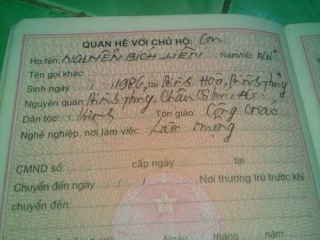 QUAN HỆ VỚI CHỦ HỘ: Con
Họ tên: NGUYỄN BÍCH LIÊN Nam/nữ: Nữ
Tên gọi khác:
Sinh ngày / /1986, tại Bình Hòa, Bình
Nguyên quán: Bình, Châu
Dân tộc: Tôn giáo: Công giáo
Nghề nghiệp, nơi làm việc: Làm ruộng
CMND số: cấp ngày tại
Chuyển đến ngày / / . Nơi thường trú trước khi
chuyển đến:
Ngày tháng năm